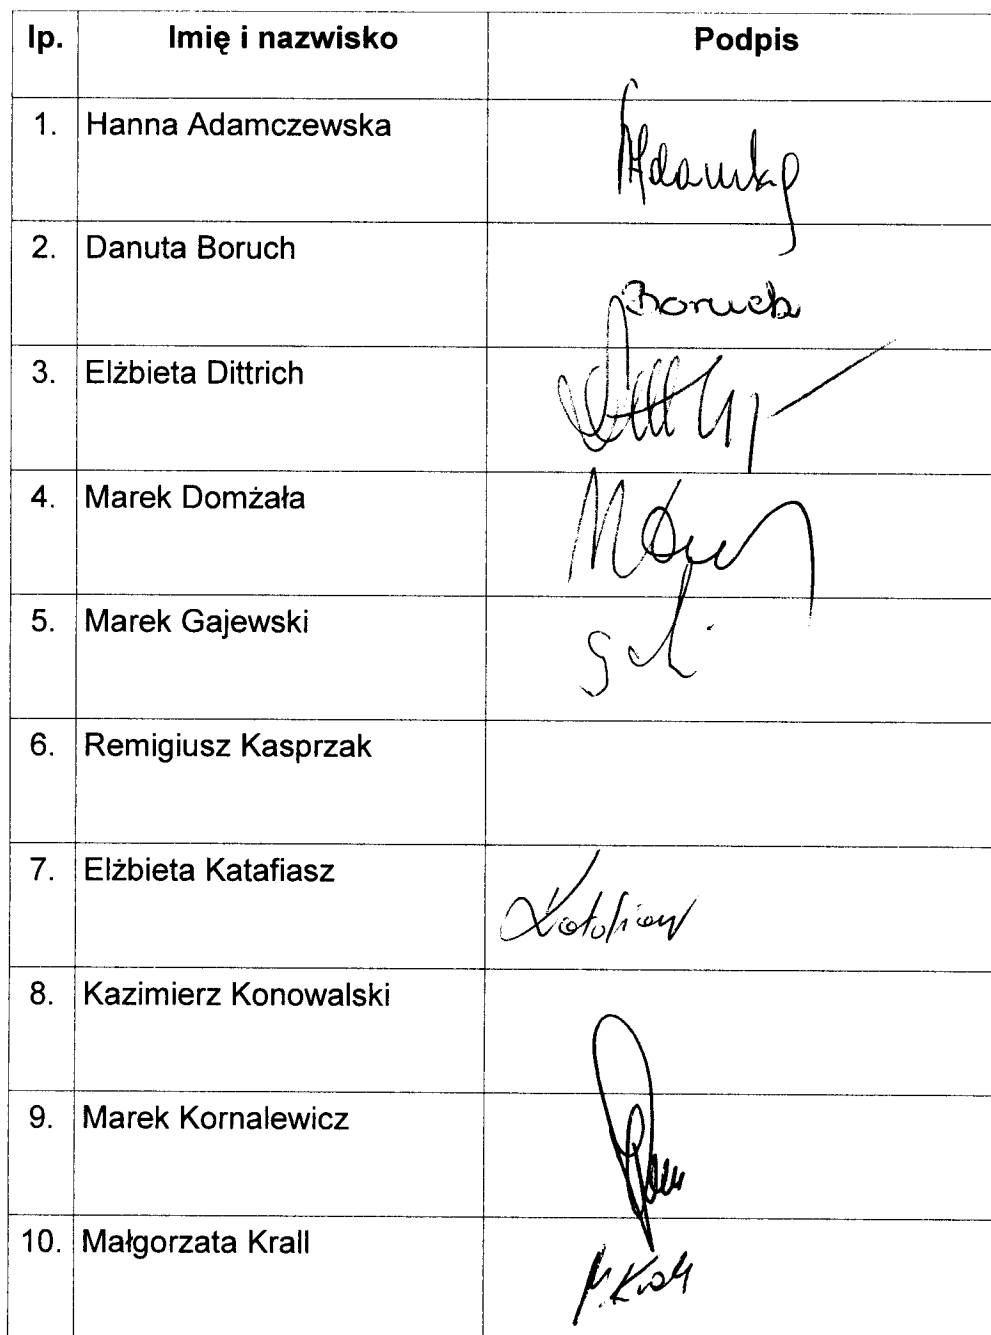 lp. Imię i nazwisko Podpis
1. Hanna Adamczewska
2. Danuta Boruch Boruch
3. Elżbieta Dittrich
4. Marek Domżała
5. Marek Gajewski
6. Remigiusz Kasprzak
7. Elżbieta Katafiasz
8. Kazimierz Konowalski
9. Marek Kornalewicz
10. Małgorzata Krall M. Krall